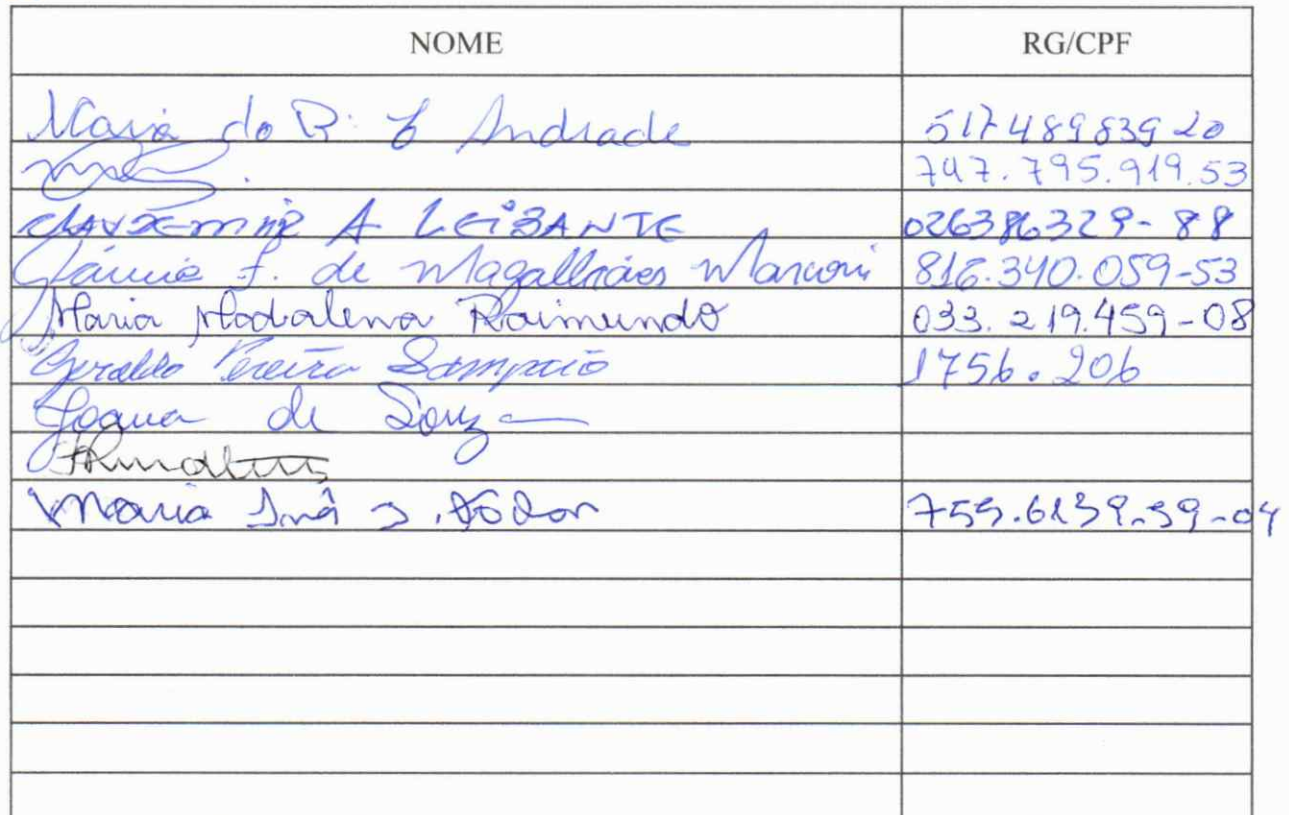 NOME RG/CPF
Maria do R. Andrade 517489839 20
747.795.919.53
A LEIBANTE 026386329-88
F. de Magalhães Marconi 816.340.059-53
Maria Madalena Raimundo 033.219.459-08
Geraldo Pereira Sampaio 1756.206
Joana de Souza
Maria Inês 755.6139.39-04